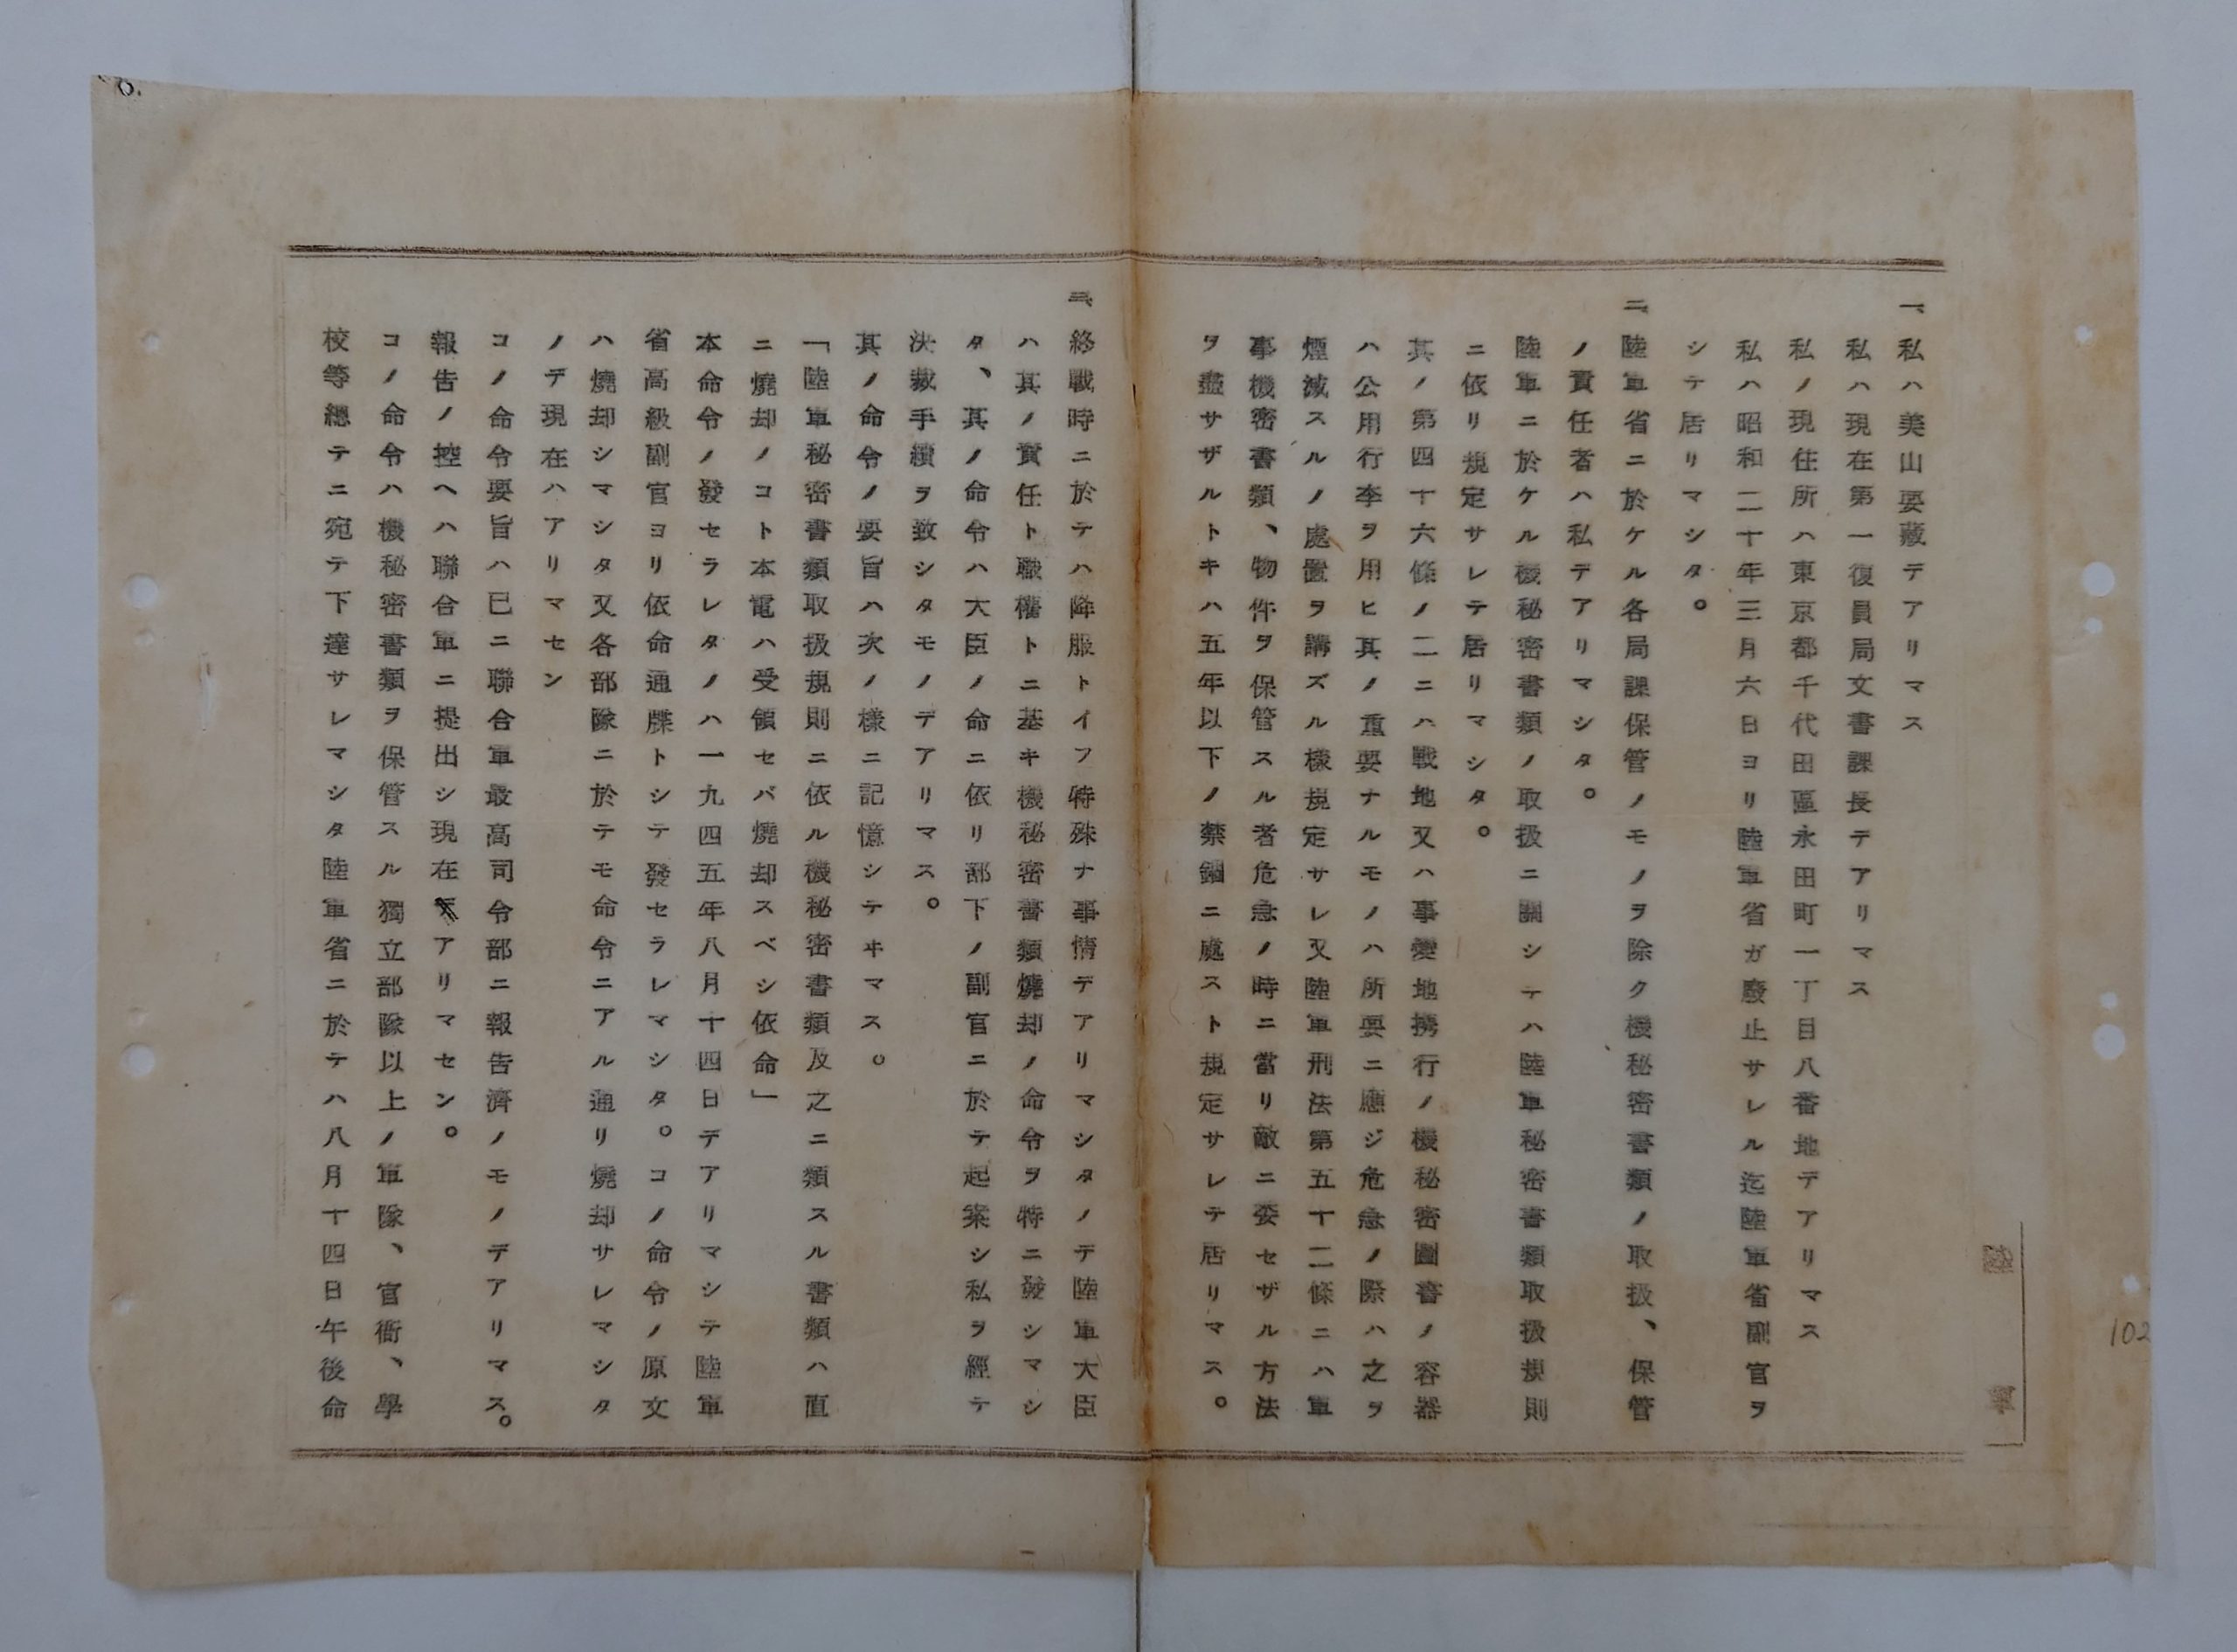 一、私ハ美山要藏テアリマス
私ハ現在第一復員局文書課長テアリマス
私ノ現住所ハ東京都千代田區永田町一丁目八番地デアリマス
私ハ昭和二十年三月六日ヨリ陸軍省ガ廢止サレル迄陸軍省副官ヲ
シテ居リマシタ。
二、陸軍省ニ於ケル各局課保管ノモノヲ除ク機秘密書類ノ取扱、保管
ノ責任者ハ私テアリマシタ。
陸軍ニ於ケル機秘密書類ノ取扱ニ關シテハ陸軍秘密書類取扱規則
ニ依リ規定サレテ居リマシタ。
其ノ第四十六條ノ二ニハ戰地又ハ事變地携行ノ機秘密圖書ノ容器
ハ公用行李ヲ用ヒ其ノ重要ナルモノハ所要ニ應ジ危急ノ際ハ之ヲ
煙滅スルノ處置ヲ講ズル樣規定サレ又陸軍刑法第五十二條ニハ軍
事機密書類、物件ヲ保管スル者危急ノ時ニ當リ敵ニ委セザル方法
ヲ盡サザルトキハ五年以下ノ禁錮ニ處スト規定サレテ居リマス。
三、終戰時ニ於テハ降服トイフ特殊ナ事情デアリマシタノデ陸軍大臣
ハ其ノ責任ト職權トニ基キ機秘密書類燒却ノ命令ヲ特ニ發シマシ
タ、其ノ命令ハ大臣ノ命ニ依リ部下ノ副官ニ於テ起案シ私ヲ經テ
決裁手續ヲ致シタモノデアリマス。
其ノ命令ノ要旨ハ次ノ樣ニ記憶シテヰマス。
「陸軍秘密書類取扱規則ニ依ル機秘密書類及之ニ類スル書類ハ直
ニ燒却ノコト本電ハ受領セバ燒却スベシ依命」
本命令ノ發セラレタノハ一九四五年八月十四日デアリマシテ陸軍
省高級副官ヨリ依命通牒トシテ發セラレマシタ。コノ命令ノ原文
ハ燒却シマシタ又各部隊ニ於テモ命令ニアル通リ燒却サレマシタ
ノデ現在ハアリマセン
コノ命令要旨ハ巳ニ聯合軍最高司令部ニ報告濟ノモノデアリマス。
報告ノ控ヘハ聯合軍ニ提出シ現在アリマセン。
コノ命令ハ機秘密書類ヲ保管スル獨立部隊以上ノ軍隊、官衙、學
校等總テニ宛テ下達サレマシタ陸軍省ニ於テハ八月十四日午後命
陸
軍
102
6.